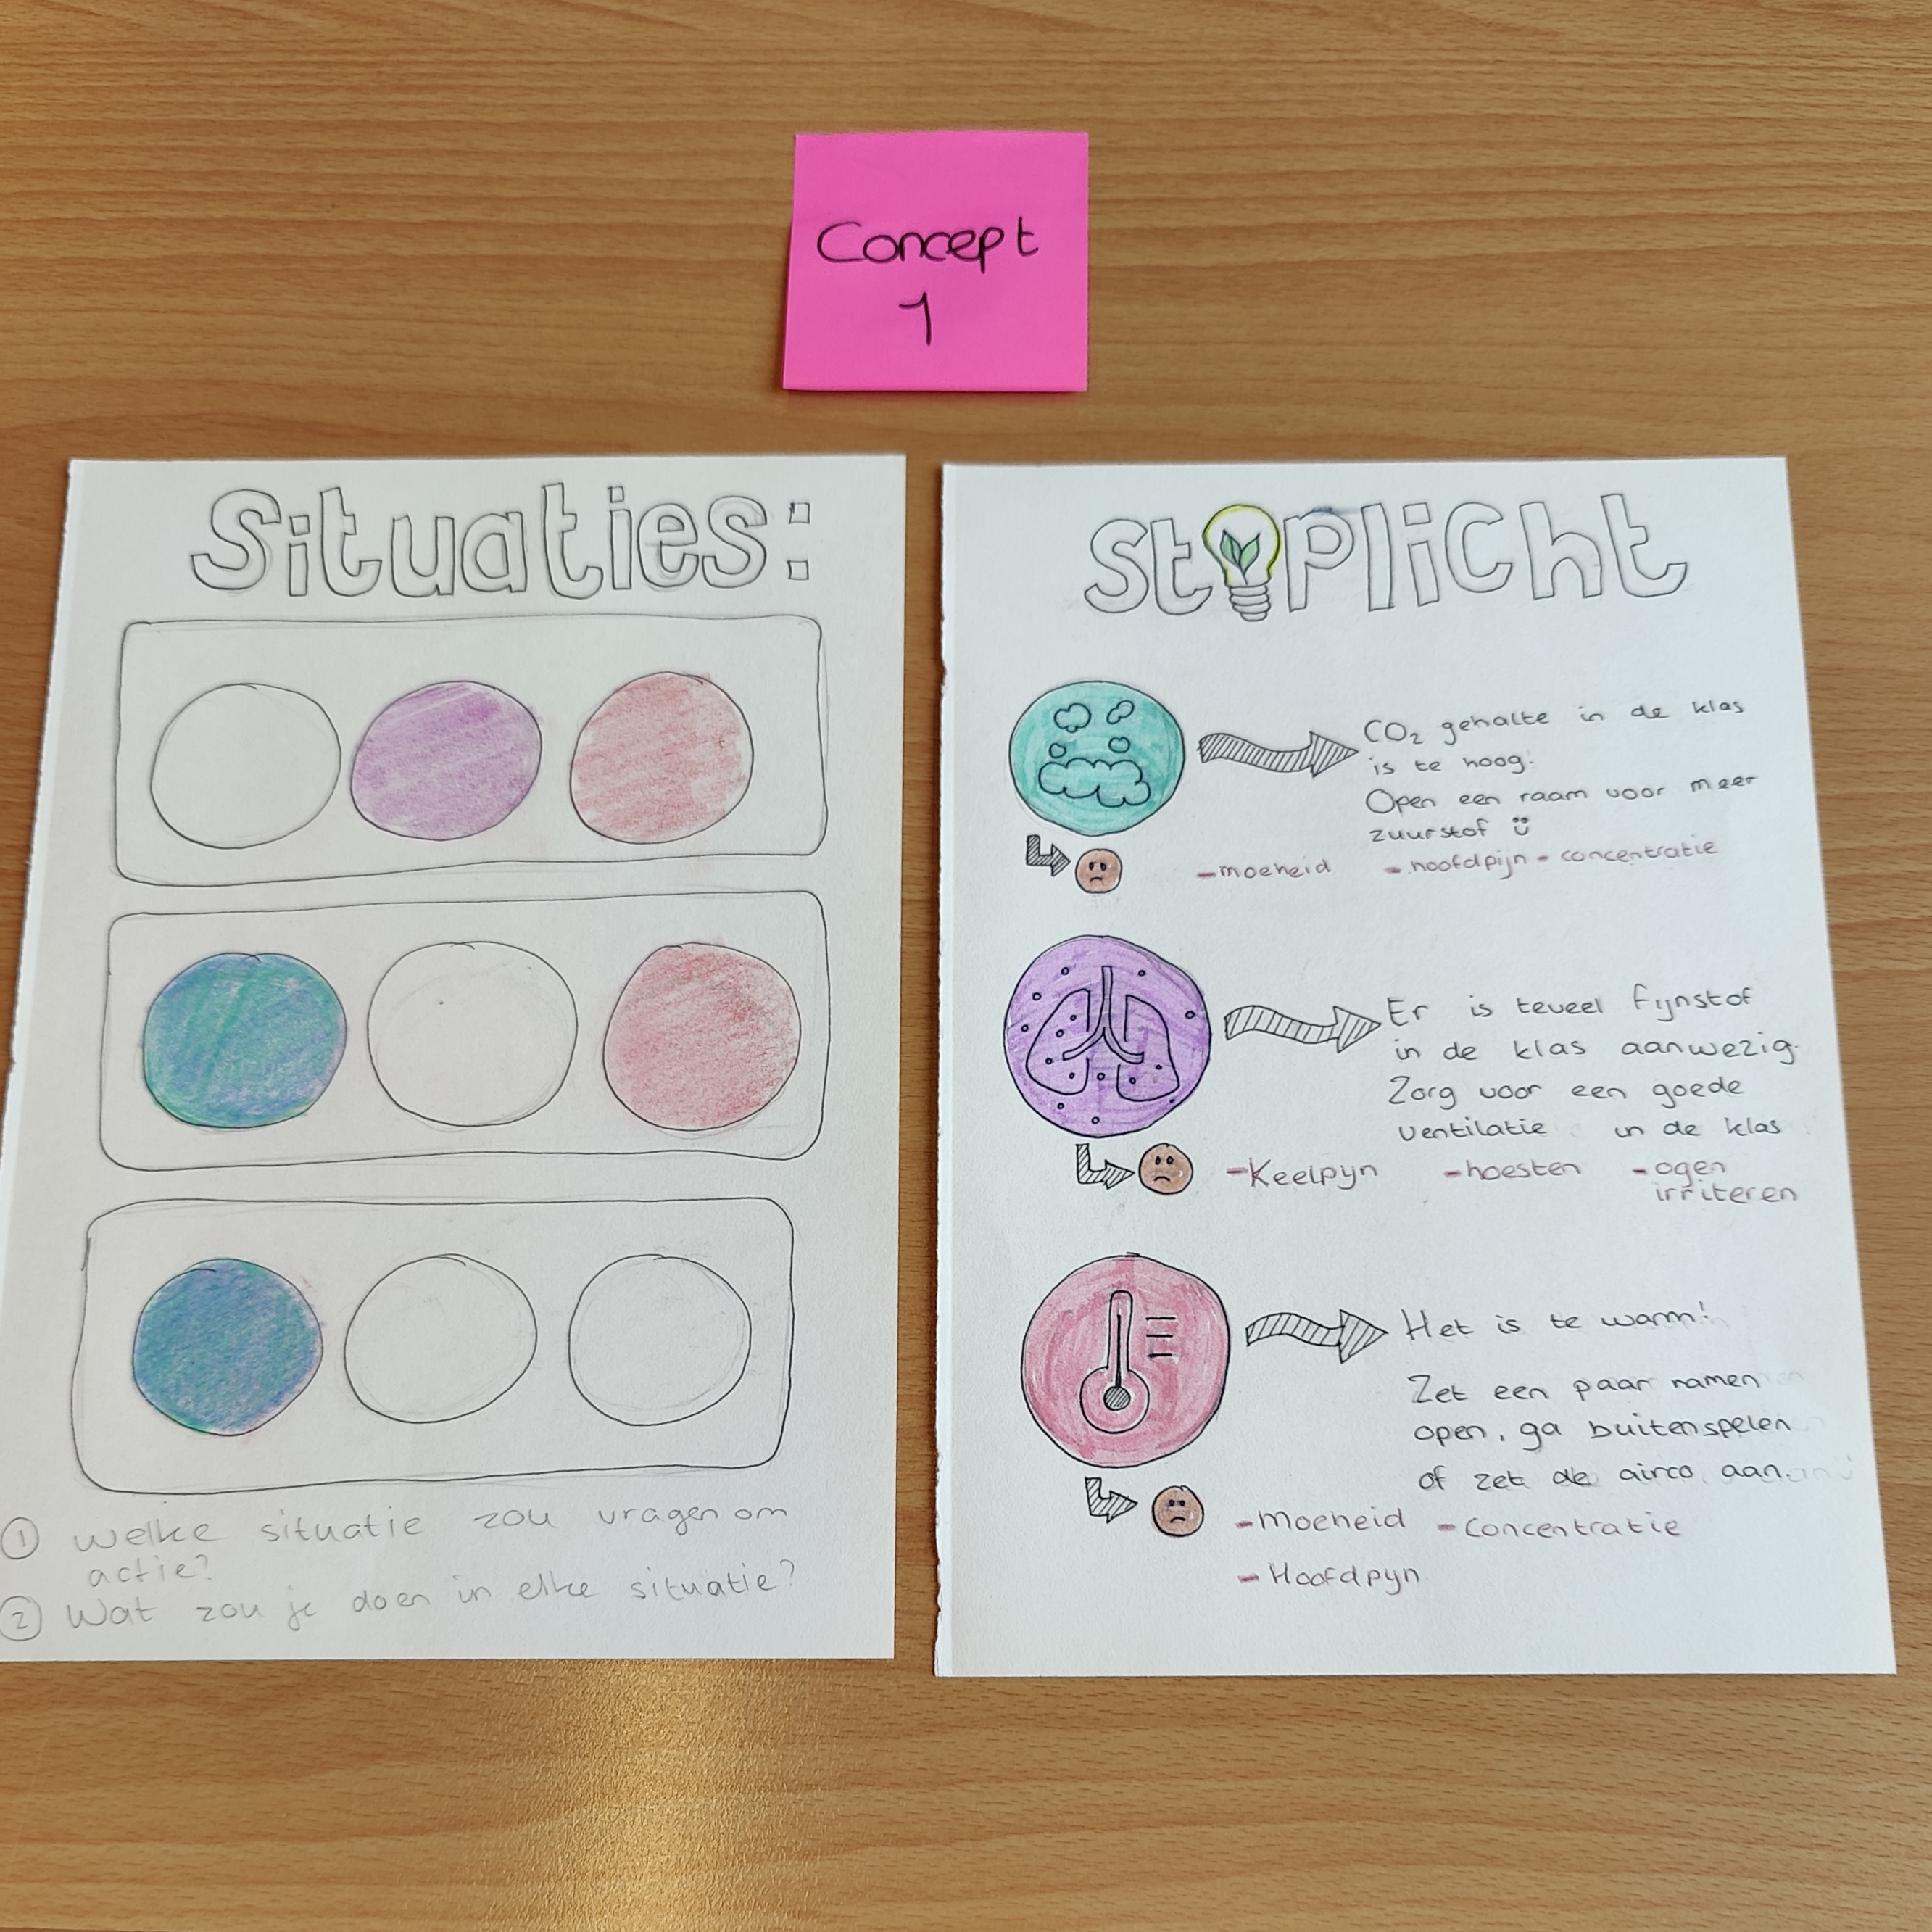 Concept
1
Situaties:
1 welke situatie zou vragen om
actie?
2 Wat zou je doen in elke situatie?
Stoplicht
CO2 gehalte in de klas
is te hoog!
Open een raam voor meer
zuurstof
-moeheid -hoofdpijn - concentratie
Er is teveel fijnstof
in de klas aanwezig.
Zorg voor een goede
ventilatie in de klas
-Keelpijn -hoesten -ogen
irriteren
Het is te warm!
Zet een paar ramen
open, ga buitenspelen
of zet de airco aan.
-moeheid -concentratie
-Hoofdpijn